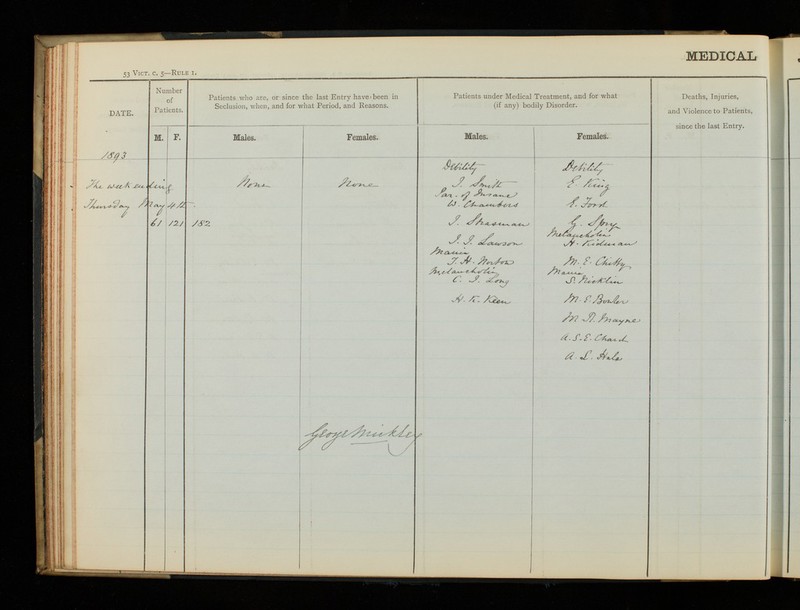 MEDICAL
53 VICT. c. 5—RULE 1.
DATE.
Number
of
Patients.
M. F.
Patients who are, or since the last Entry have been in
Seclusion, when, and for what Period, and Reasons.
Males. Females.
Patients under Medical Treatment, and for what
(if any) bodily Disorder.
Males. Females.
Deaths, Injuries,
and Violence to Patients,
since the last Entry.
1893
The week ending
Thursday May 4th
61 121 182
None None
Debility
J. Smith
Par. of Insane
W. Chambers
J. Strasman
J. J. Lawson
Mania
T. H. Norton
Melancholia
C. J. Long
H. K. Keen
Debility
E. King
E. Ford
G. Spry
Melancholia
H. Kidman
M. E. Chitty
Mania
S. Nicklin
M. E. Bowler
M. A. Mayne
A. S. E. Chard
A. S. Hale
George Mickley